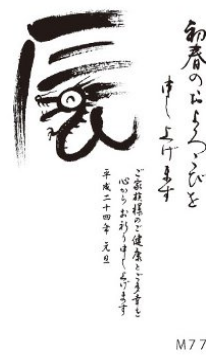 初春のおよろこびを
申し上げます
辰
ご家族様のご健康とご多幸を
心からお祈り申し上げます
平成二十四年 元旦
M77